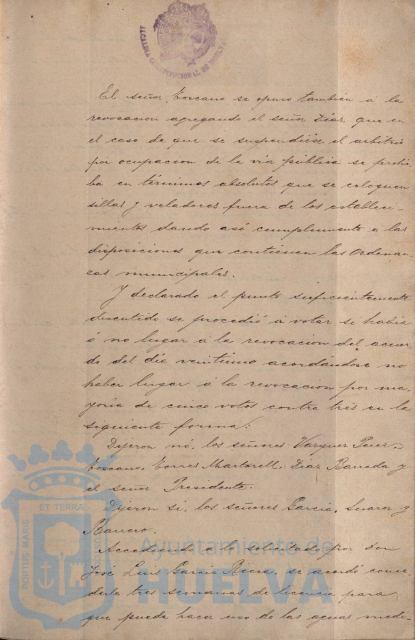 El señor Toscano se opuso tambien a la
revocacion agregando el señor Diaz que en
el caso de que se suspendiese el arbitrio
por ocupacion de la via publica se prohi
ba en términos absolutos que se coloquen
sillas y veladores fuera de los estableci-
mientos dando asi cumplimiento a las
disposiciones que contienen las Ordenan-
zas municipales.
Y declarado el punto suficientemente
discutido se procedió á votar si habia
o no lugar á la revocacion del acuer
do del dia veintiuno acordándose no
haber lugar á la revocacion por ma
yoria de cinco votos contra tres en la
siguiente forma:
Dijeron nó, los señores Vazquez
Toscano, Torres Martorell, Diaz Barreda y
el señor Presidente.
Dijeron si, los señores Garcia, Suarez y
Accediendo a lo solicitado por don
José Luis Garcia se acordó conce
derle tres semanas de licencia para
que pueda hacer uso de las aguas medi
Ayuntamiento de
HUELVA
PORTUS MARIS
ET TERRÆ